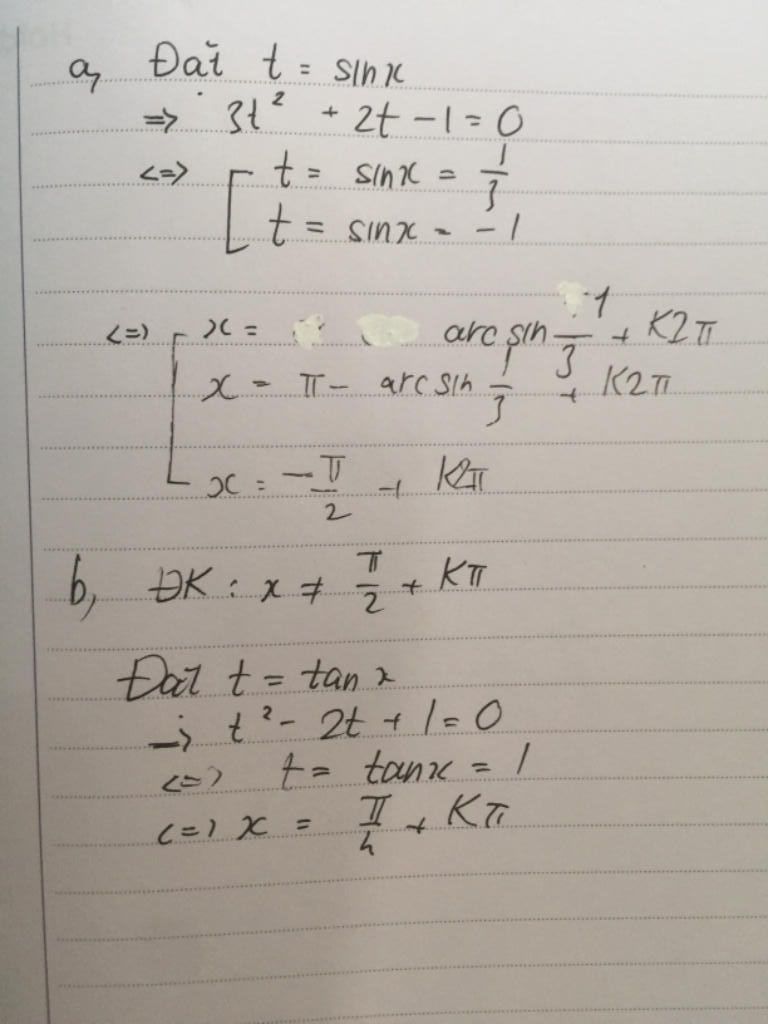 a, Đặt t = sinx
=> 3t² + 2t - 1 = 0
<=> [ t = sinx = 1/3
t = sinx = -1
<=> [ x = arcsin 1/3 + K2π
x = π - arcsin 1/3 + K2π
x = -π/2 + K2π
b, ĐK : x ≠ π/2 + Kπ
Đặt t = tanx
=> t² - 2t + 1 = 0
<=> t = tanx = 1
<=> x = π/4 + Kπ